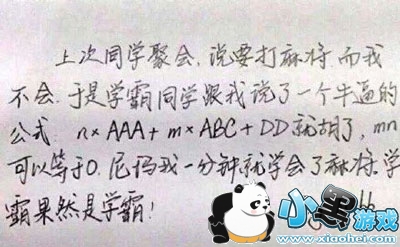 上次同学聚会，说要打麻将，而我
不会，于是学霸同学跟我说了一个牛逼的
公式：n×AAA+m×ABC+DD就胡了，mn
可以等于0。尼玛我一分钟就学会了麻将，学
霸果然是学霸！
小黑游戏
www.xiaohei.com